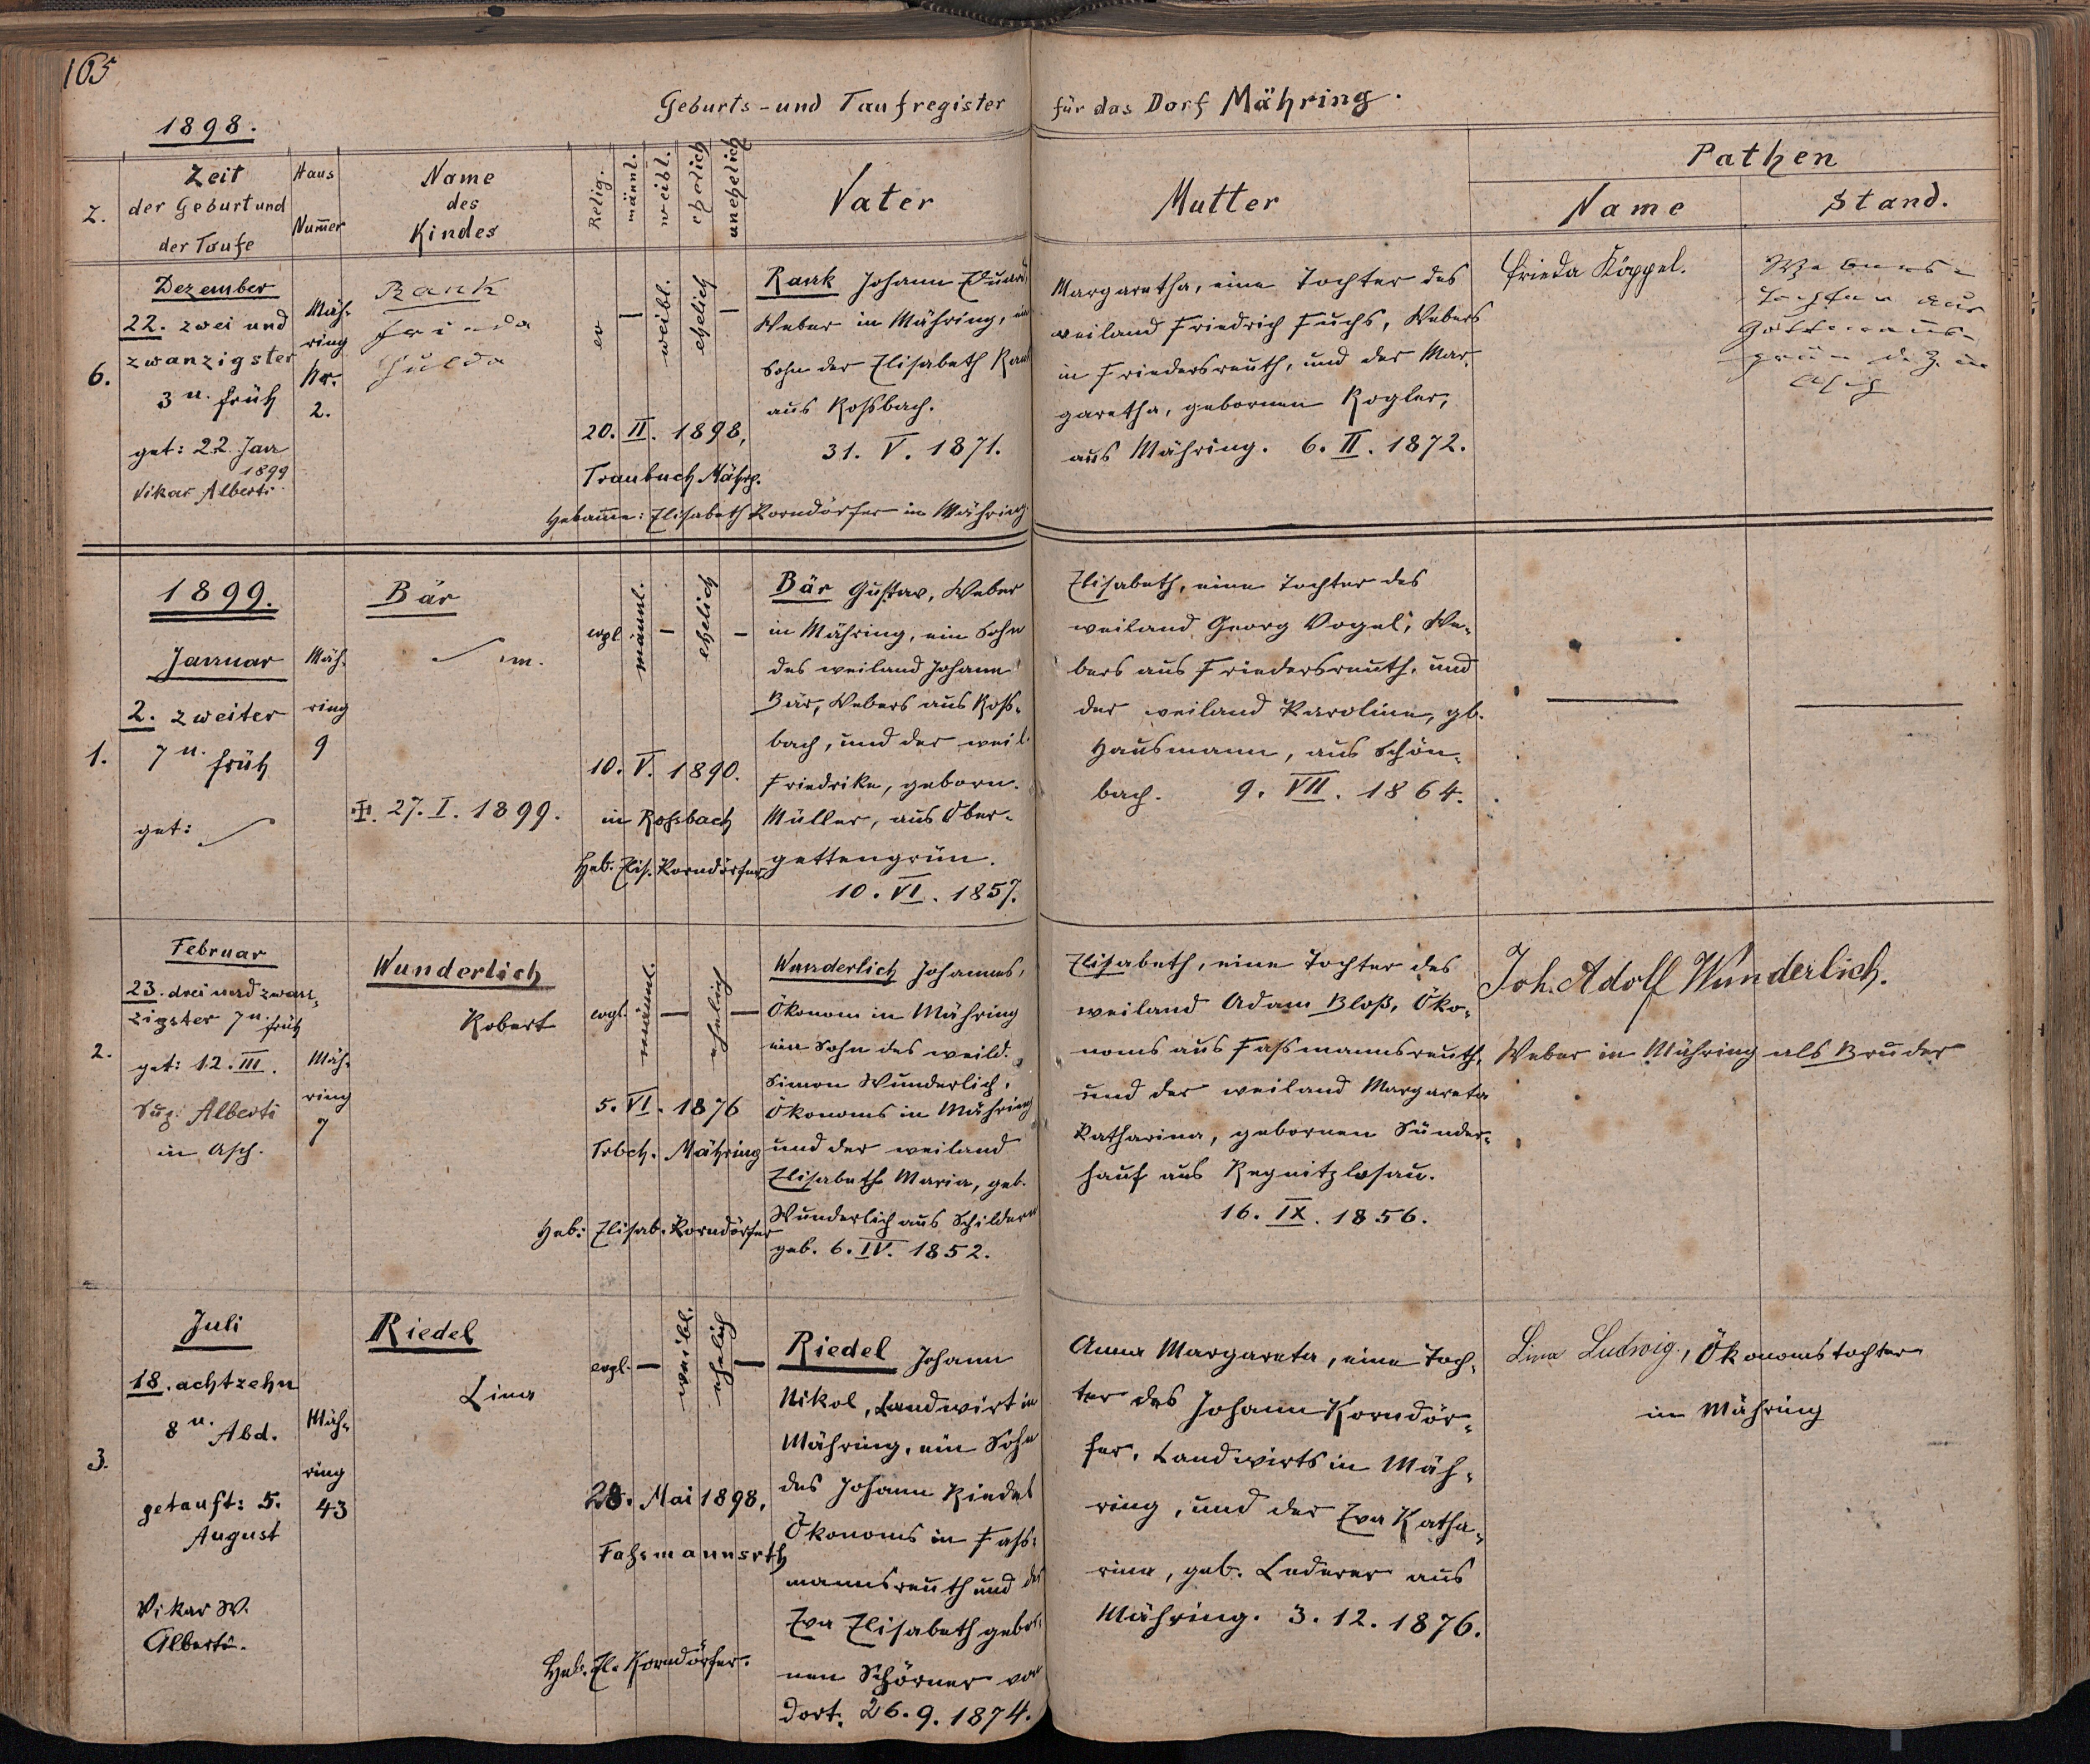 165
Geburts-und Taufregister für das Dorf Mähring.
1898.
Z.
Zeit
der Geburt und
der Taufe
Haus
Num̅er
Name
des
Kindes
Relig.
männl.
weibl.
ehelich
unehelich
Vater
Mutter
Pathen
Name
Stand.
6.
Dezember
22. zwei und
zwanzigster
3 u. früh
get: 22. Jan
1899
Vikar Alberti
Mäh-
ring
Nr.
2.
Rank
Frieda
Hulda
ev
—
weibl.
ehelich
—
20. II. 1898,
Traubuch Mährg.
Hebam̅e: Elisabeth Korndörfer in Mähring
Rank Johann Eduard,
Weber in Mähring, ein
Sohn der Elisabeth Rank
aus Roßbach.
31. V. 1871.
Margaretha, eine Tochter des
weiland Friedrich Fuchs, Webers
in Friedersreuth, und der Mar-
garetha, gebornen Rogler,
aus Mähring. 6. II. 1872.
Frieda Köppel.
Webers-
tochter aus
Gottmanns-
grün d. Z. in
Asch
1899.
1.
Januar
2. zweiter
7 u. früh
get:
Mäh-
ring
9
Bär
m.
✠. 27. I. 1899.
evgl.
männl.
—
ehelich
—
10. V. 1890.
in Roßbach
Heb. Elis. Korndörfer
Bär Gustav, Weber
in Mähring, ein Sohn
des weiland Johann
Bär, Webers aus Roß-
bach, und der weil.
Friedrike, geborn.
Müller, aus Ober-
gettengrün.
10. VI. 1857.
Elisabeth, eine Tochter des
weiland Georg Vogel, We-
bers aus Friedersreuth, und
der weiland Karoline, gb.
Hausmann, aus Schön-
bach. 9. VII. 1864.
—
—
2.
Februar
23. drei und zwan-
zigster 7 u. früh
get: 12. III.
Sup. Alberti
in Asch.
Mäh-
ring
7
Wunderlich
Robert
evgl.
männl.
—
ehelich
—
5. VI. 1876
Trbch. Mähring
Heb: Elisab. Korndörfer
Wunderlich Johannes,
Ökonom in Mähring
ein Sohn des weild.
Simon Wunderlich,
Ökonoms in Mähring
und der weiland
Elisabeth Maria, geb.
Wunderlich aus Schildern
geb. 6. IV. 1852.
Elisabeth, eine Tochter des
weiland Adam Bloß, Öko-
noms aus Faßmannsreuth,
und der weiland Margareta
Katharina, gebornen Sünder-
hauf aus Regnitzlosau.
16. IX. 1856.
Joh. Adolf Wunderlich.
Weber in Mähring als Bruder
3.
Juli
18. achtzehn
8 u. Abd.
getauft: 5.
August
Vikar W.
Alberti.
Mäh-
ring
43
Riedel
Lina
evgl.
—
weibl.
ehelich
—
28. Mai 1898.
Faßmannsrth
Heb. El. Korndörfer.
Riedel Johann
Nikol, Landwirt in
Mähring, ein Sohn
des Johann Riedel
Ökonoms in Faß-
mannsreuth und der
Eva Elisabeth gebor-
nen Schörner von
dort. 26. 9. 1874.
Anna Margareta, eine Toch-
ter des Johann Korndör-
fer, Landwirts in Mäh-
ring, und der Eva Katha-
rina, geb. Lederer aus
Mähring. 3. 12. 1876.
Lina Ludwig, Ökonomstochter
in Mähring